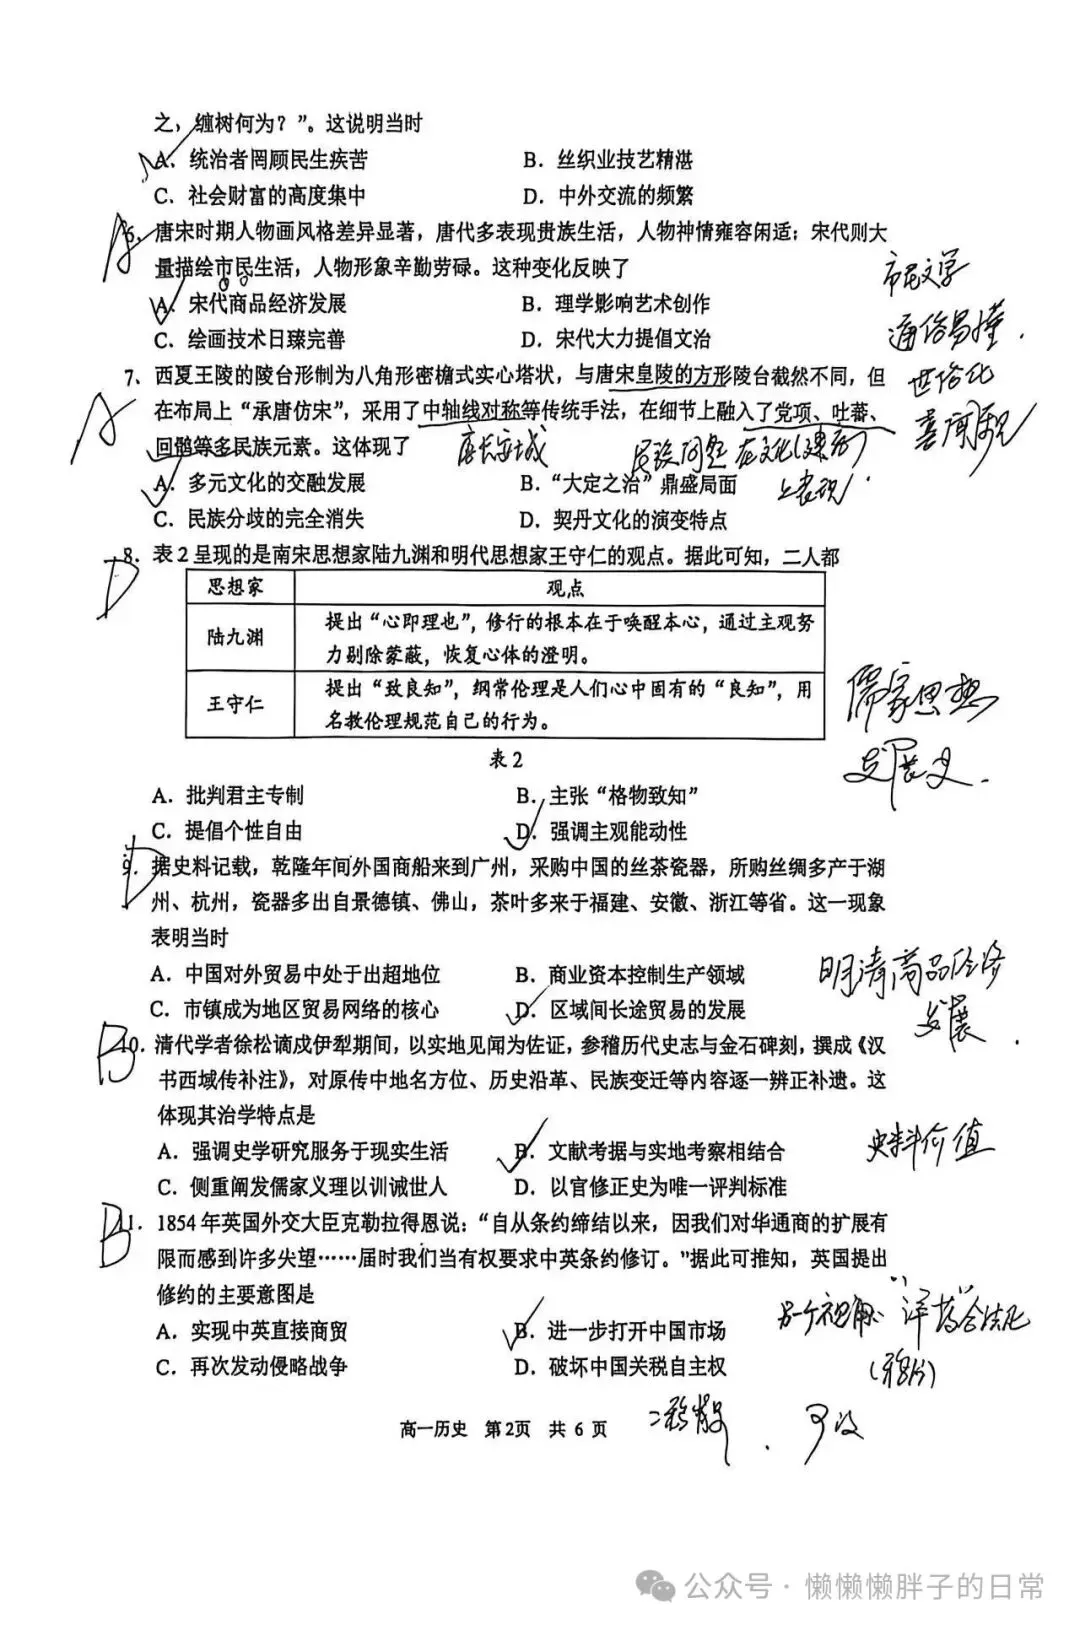 之，缠树何为？”。这说明当时
A．统治者罔顾民生疾苦
B．丝织业技艺精湛
C．社会财富的高度集中
D．中外交流的频繁
A
6．唐宋时期人物画风格差异显著，唐代多表现贵族生活，人物神情雍容闲适；宋代则大
量描绘市民生活，人物形象辛勤劳碌。这种变化反映了
市民文学
A．宋代商品经济发展
B．理学影响艺术创作
C．绘画技术日臻完善
D．宋代大力提倡文治
通俗易懂．
7、西夏王陵的陵台形制为八角形密檐式实心塔状，与唐宋皇陵的方形陵台截然不同，但
世俗化
A
在布局上“承唐仿宋”，采用了中轴线对称等传统手法，在细节上融入了党项、吐蕃、
喜闻乐见
回鹘等多民族元素。这体现了
唐长安城
民族问题在文化(建房)
A．多元文化的交融发展
B．“大定之治”鼎盛局面
上表现．
C．民族分歧的完全消失
D．契丹文化的演变特点
D
8．表2呈现的是南宋思想家陆九渊和明代思想家王守仁的观点。据此可知，二人都
思想家
观点
陆九渊
提出“心即理也”，修行的根本在于唤醒本心，通过主观努
力剔除蒙蔽，恢复心体的澄明。
王守仁
提出“致良知”，纲常伦理是人们心中固有的“良知”，用
名教伦理规范自己的行为。
儒家思想
发展史．
表2
A．批判君主专制
B．主张“格物致知”
C．提倡个性自由
D．强调主观能动性
D
9．据史料记载，乾隆年间外国商船来到广州，采购中国的丝茶瓷器，所购丝绸多产于湖
州、杭州，瓷器多出自景德镇、佛山，茶叶多来于福建、安徽、浙江等省。这一现象
表明当时
A．中国对外贸易中处于出超地位
B．商业资本控制生产领域
明清商品经济
C．市镇成为地区贸易网络的核心
D．区域间长途贸易的发展
发展．
B
10．清代学者徐松谪戍伊犁期间，以实地见闻为佐证，参稽历代史志与金石碑刻，撰成《汉
书西域传补注》，对原传中地名方位、历史沿革、民族变迁等内容逐一辨正补遗。这
体现其治学特点是
A．强调史学研究服务于现实生活
B．文献考据与实地考察相结合
史料价值
C．侧重阐发儒家义理以训诫世人
D．以官修正史为唯一评判标准
B
11．1854年英国外交大臣克勒拉得恩说：“自从条约缔结以来，因我们对华通商的扩展有
限而感到许多失望……届时我们当有权要求中英条约修订。”据此可推知，英国提出
修约的主要意图是
另一个视角：“洋药合法化”
A．实现中英直接商贸
B．进一步打开中国市场
C．再次发动侵略战争
D．破坏中国关税自主权
(鸦片)
高一历史 第2页 共6页
公众号·懒懒懒胖子的日常